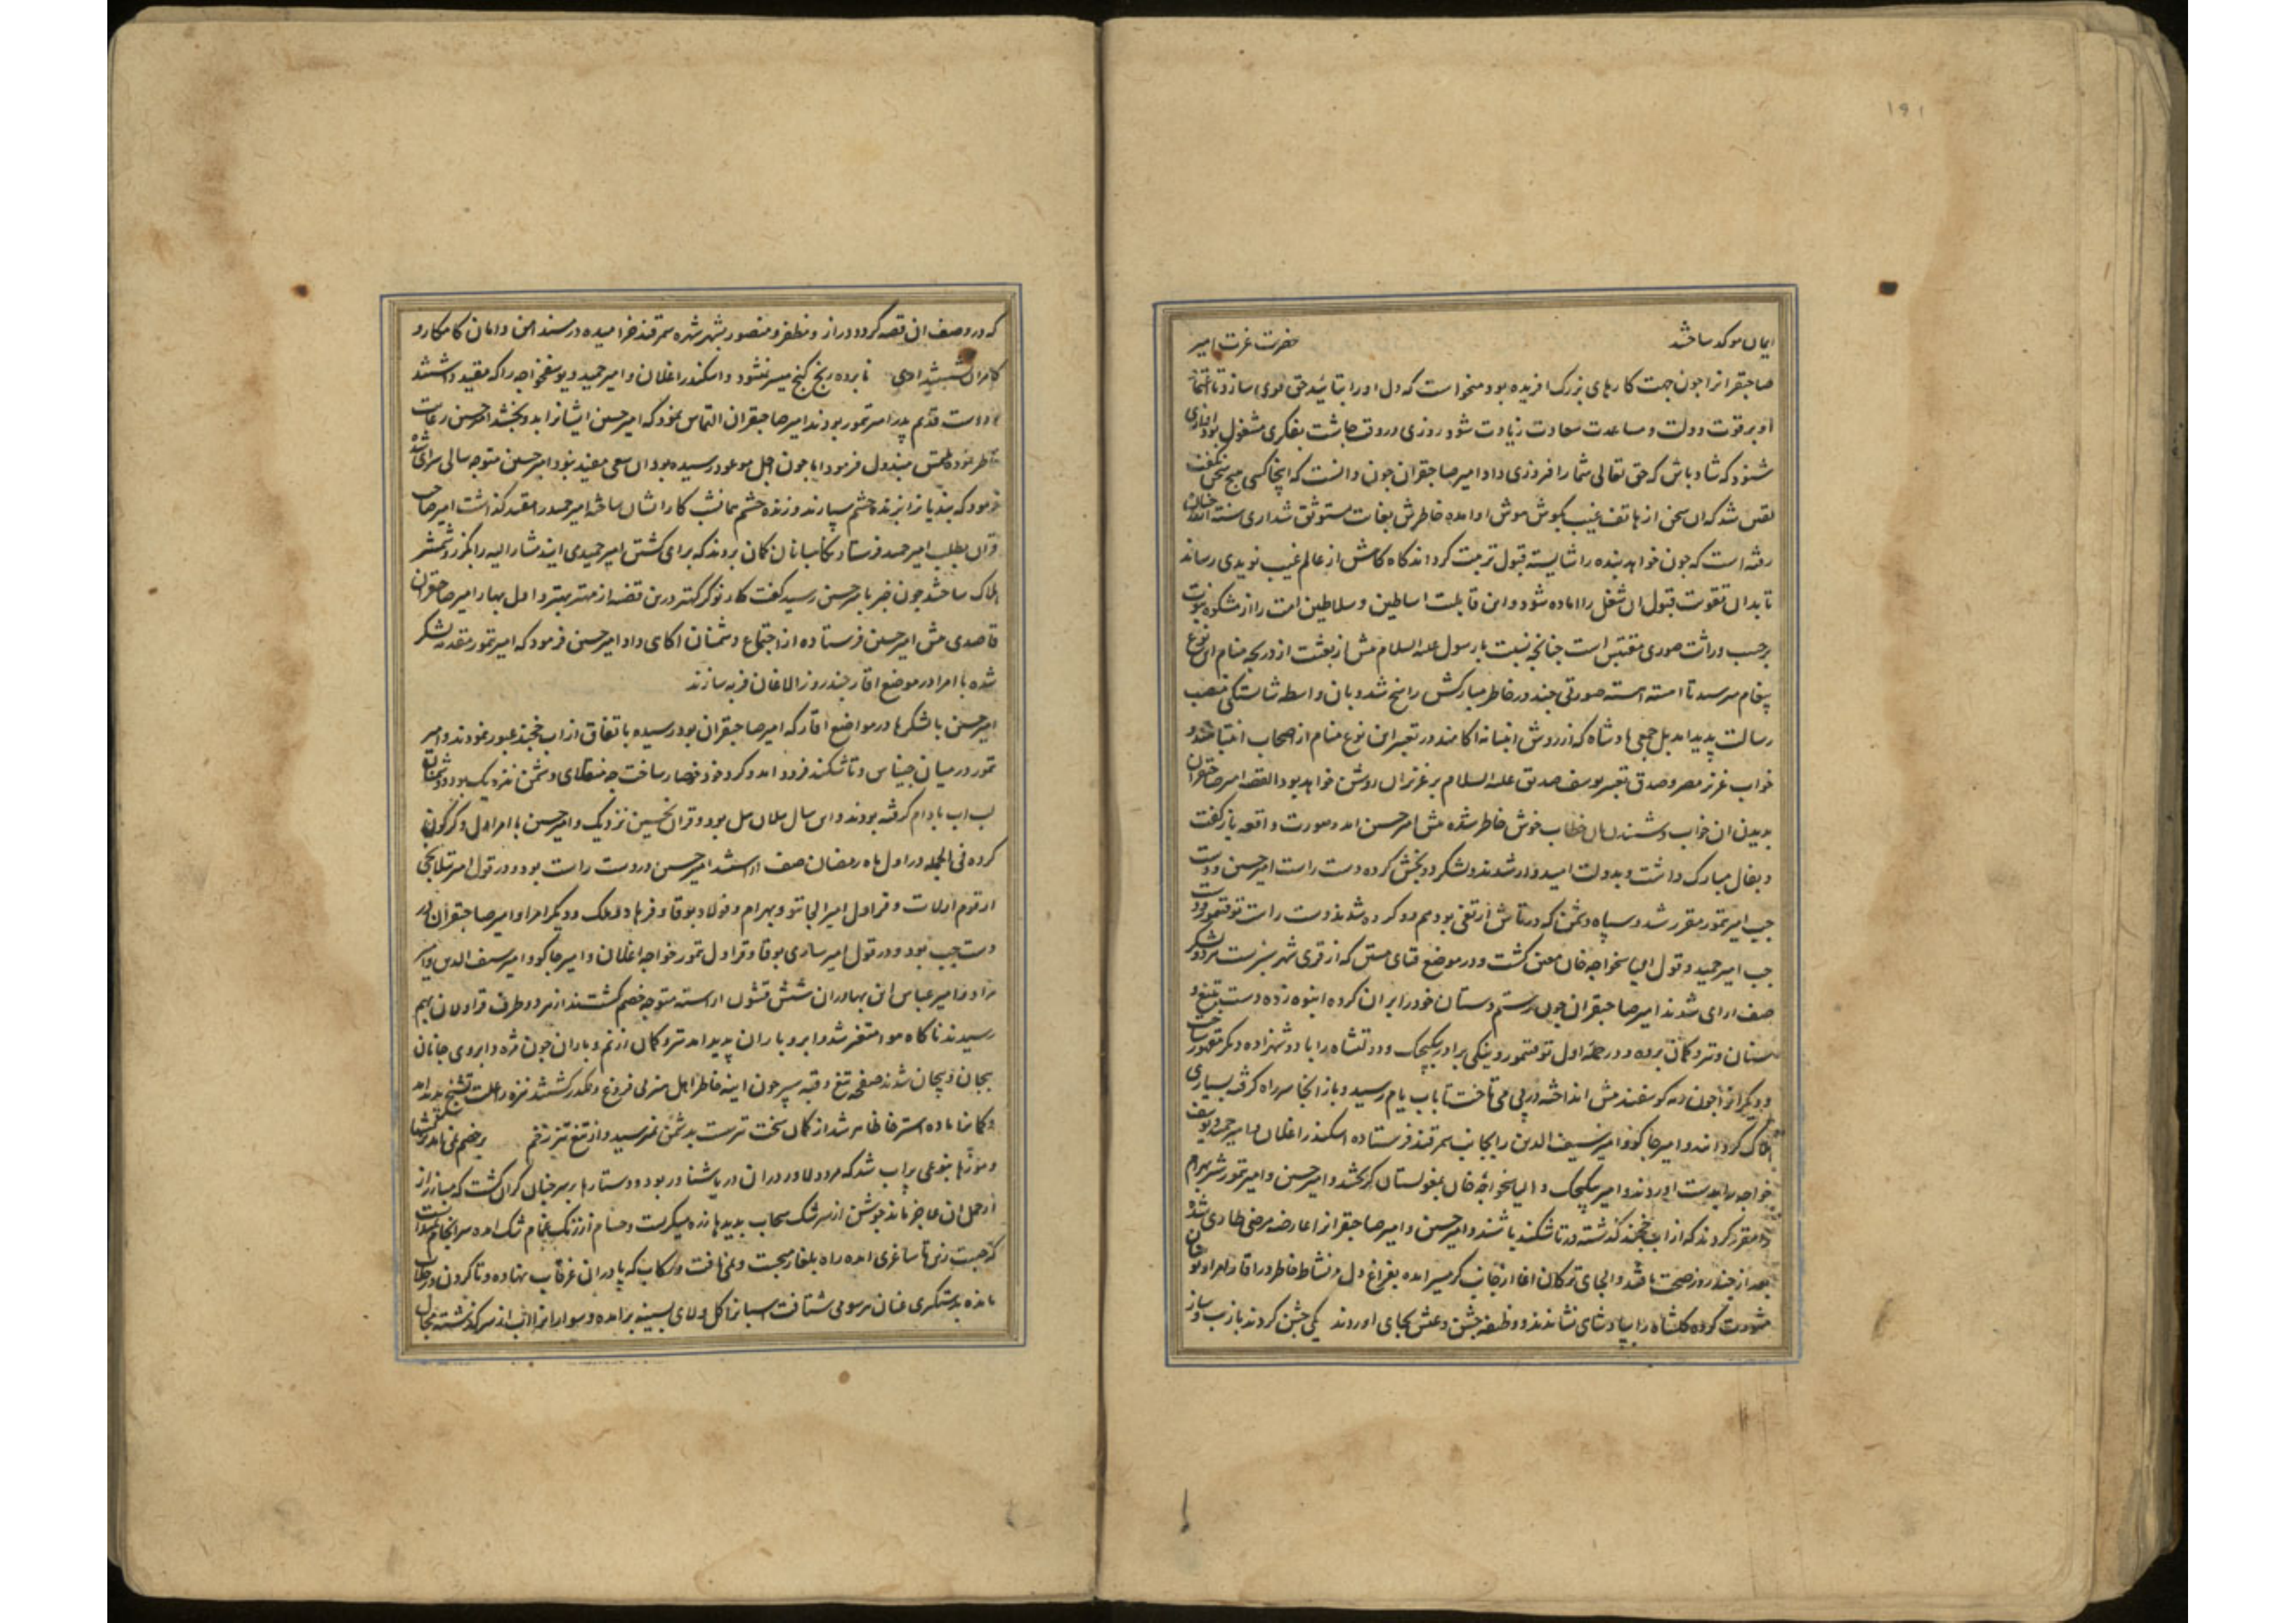 ۱۹۱
ایمان موکد ساختند حضرت عزت امیر
صاحبقرانرا چون جهت کارهای بزرک افریده بود میخواست که دل او را بتائید حق قوی سازد تا اعتقاد
او بر قوت دولت و مساعدت سعادت زیادت شود روزی در وقت چاشت بفکری مشغول بود اوازی
شنود که شاد باش که حق تعالی شما را فیروزی داد امیر صاحبقران چون دانست که اینجا کسی هیچ سخن نکفت
یقین شد که ان سخن از هاتف غیب بکوش هوش او امده خاطرش بغایت مستوثق شد اری سنة الله چنان
رفته است که چون خواهد بنده را شایسته قبول تربیت کرداند کاه کاهش از عالم غیب نویدی رساند
تا بدان تقویت قبول ان شغل را اماده شود و این قابلیت اساطین و سلاطین امت را از مشکوة نبوت
بر حسب وراثت صوری مقتبس است چنانچه نسبت با رسول علیه السلام پیش از بعثت از دریچه منام این نوع
پیغام میرسید تا اهسته اهسته صورتی چند در خاطر مبارکش راسخ شد و بان واسطه شایستکی منصب
رسالت پدید امد بل جمعی پادشاه که از روش انبیا نه اکاهند در تعبیر این نوع منام از اصحاب انتباهند و
خواب عزیز مصر و صدق تعبیر یوسف صدیق علیه السلام بر عزیزان روشن خواهد بود القصه امیر صاحبقران
بدیدن ان خواب و شنیدن ان خطاب خوش خاطر شده پیش امیر حسین امد و صورت واقعه بازکفت
و بفال مبارک داشت و بدولت امیدوار شدند و لشکر دو بخش کرده دست راست امیر حسین و دست
چپ امیر تمور مقرر شد و سپاه دشمن که در تاش اریغی بود هم دو کروه شدند دست راست توقتمور و دست
چپ امیر حمید و قول الیاسخواجه خان معین کشت و در موضع قبای متن که از قری شهر سبزست هر دو لشکر
صف ارای شدند امیر صاحبقران چون رستم دستان خود را بر ان کروه انبوه زده دست بتیغ و
سنان و تیر و کمان برده و در حمله اول توقتمور و بیکی برادر بیکیجک و دولتشاه را با دو شهزاده دیکر مقهور ساخت
و دیکرانرا چون رمه کوسفند پیش انداخته در پی می تاخت تا باب یام رسید و باز انجا سر راه کرفته بسیاری
هلاک کردانید و امیر جاکو و امیر سیف الدین را بجانب سمرقند فرستاده اسکندر اغلان و امیر حمید و یوسف
خواجه را بدست اوردند و امیر بیکیجک و الیاسخواجه خان بمغولستان کریختند و امیر حسین و امیر تمور شیر بهرام
را مقرر کردند که از اب خجند کذشته در تاشکند باشند و امیر حسین و امیر صاحبقرانرا عارضه مرضی طاری شد
بعد از چند روز صحت یافتند و الجای ترکان اغا از جانب کرمسیر امده بفراغ دل و نشاط خاطر در اقار
مشورت کرده کابلشاه را بپادشاهی نشاندند و وظیفه جشن و عیش بجای اوردند یکی جشن کردند با زیب و ساز
که در وصف ان قصه کردد دراز و مظفر و منصور بشهر شهره سمرقند خرامیده در مسند امن و امان کامکار و
کامران نابرده رنج کنج میسر نشود و اسکندر اغلان و امیر حمید و یوسفخواجه را که مقید داشتند
قدیم پدر امیر تمور بودند امیر صاحبقران التماس نمود که امیر حسین ایشانرا بدو بخشد امیر حسین رعایت
خاطر نموده ملتمس مبذول فرمود اما چون اجل موعود رسیده بود ان سعی مفید نبود امیر حسین متوجه سالی سرای شده
فرمود که بندیانرا بزنده چشم سپارند و زنده چشم همانشب کار ایشان ساخته امیر حمید را مقید کذاشت امیر صاحب
قران بطلب امیر حمید فرستاد نکاهبانان کمان بردند که برای کشتن امیر حمید می ایند مشار الیه را بکرز و شمشیر
هلاک ساختند چون خبر بامیر حسین رسید کفت کار نوکر کهتر درین قضیه از مهتر بهتر و اول بهار امیر صاحبقران
قاصدی پیش امیر حسین فرستاده از اجتماع دشمنان اکاهی داد امیر حسین فرمود که امیر تمور مقدمه لشکر
شده با امرا در موضع اقار چند روز الاغان فربه سازند
امیر حسین با لشکرها در مواضع اقار که امیر صاحبقران بود رسیده باتفاق از اب خجند عبور نمودند و امیر
تمور در میان چیناس و تاشکند فرود امد و کرد خود حصار ساخت چه منقلای دشمن نزدیک بود و دشمنان
لب اب بادام کرفته بودند و این سال ییلان ییل بود و قران نحسین نزدیک و امیر حسین با امرا دل دکرکون
کرده فی الجمله در اول ماه رمضان صف اراستند امیر حسین در دست راست بود و در قول امیر تیلانجی
از قوم ارلات و قراول امیر الجایتو و بهرام و فولاد بوقا و فرهاد و ملک و دیکر امرا و امیر صاحبقران در
دست چپ بود و در قول امیر ساری بوقا و قراول تمور خواجه اغلان و امیر جاکو و امیر سیف الدین و امیر
مراد و امیر عباس این بهادران شش قشون اراسته متوجه خصم کشتند از هر دو طرف قراولان بهم
رسیدند ناکاه هوا متغیر شد و ابر و باران پدید امد تیر و کمان از نم و باران چون مژه و ابروی جانان
بیجان و پیچان شدند صفحه تیغ و قبه سپر چون اینه خاطر اهل منزلی فروغ و مکدر کشتند نیزه را علت تشنج پدید امد
و کمانها ماده استرخا ظاهر شد از کمان سخت تیر سست بدشمن نمیرسید و از تیغ تیز زخم بر خصم نمی امد
و موزها بنوعی پر اب شد که مرد دلاور در ان دریا شناور بود و دستارها بر سر چنان کران کشت که مبارزان
از حمل ان عاجز ماند جوشن از سرشک سحاب بدیدهای زره میکریست و حسام از زنک بنیام تنک امده سرانجام
تا ساغری امده راه بلغار میجست و نمی یافت و رکاب که پا در ان غرقاب نهاده و تا کردن در خلاب
مانده بدستکیری عنان هر سو می شتافت اسبانرا کل و لای بسینه برامده و سوارانرا اب از سر کذشته بحال